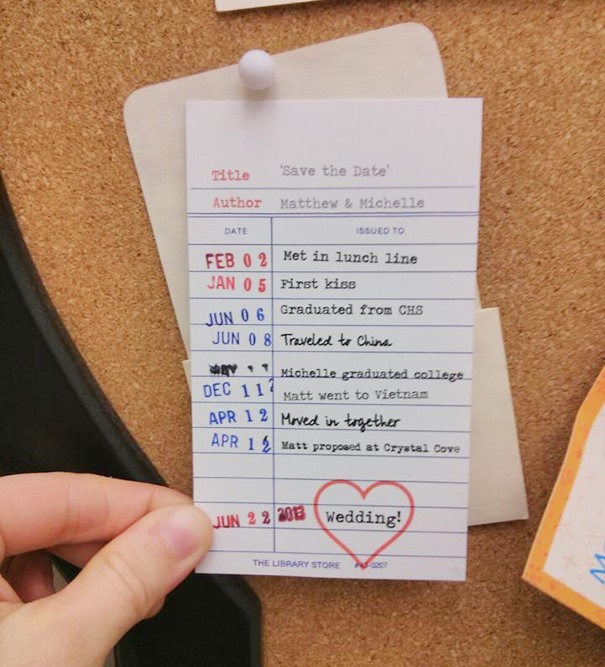 Title 'Save the Date'
Author Matthew & Michelle
DATE ISSUED TO
FEB 0 2 Met in lunch line
JAN 0 5 First kiss
JUN 0 6 Graduated from CHS
JUN 0 8 Traveled to China
MAY Michelle graduated college
DEC 1 1 Matt went to Vietnam
APR 1 2 Moved in together
APR 1 2 Matt proposed at Crystal Cove
JUN 2 2 2013 Wedding!
THE LIBRARY STORE #43-0207